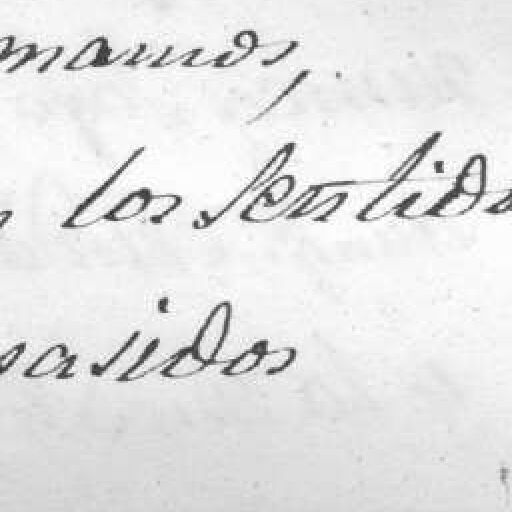 manos,
los Sentido
sasidos